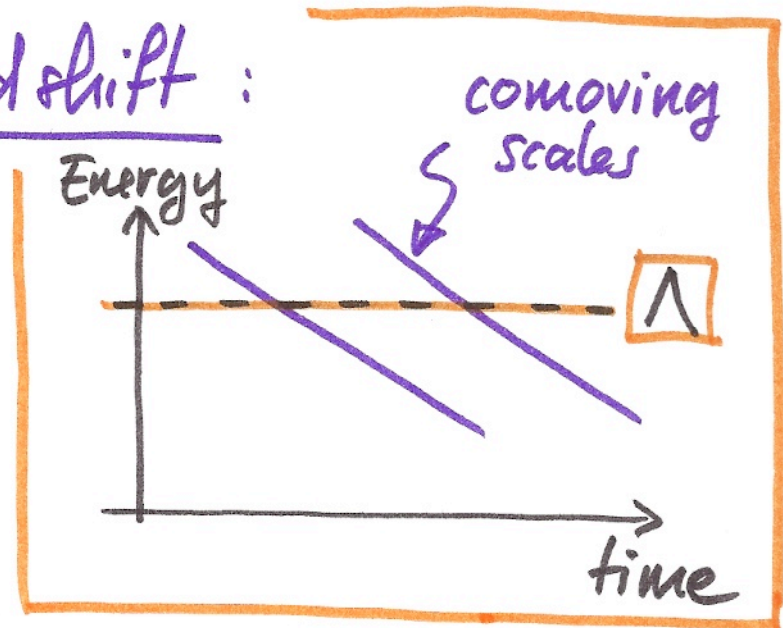 dshift :
comoving
scales
Energy
Λ
time